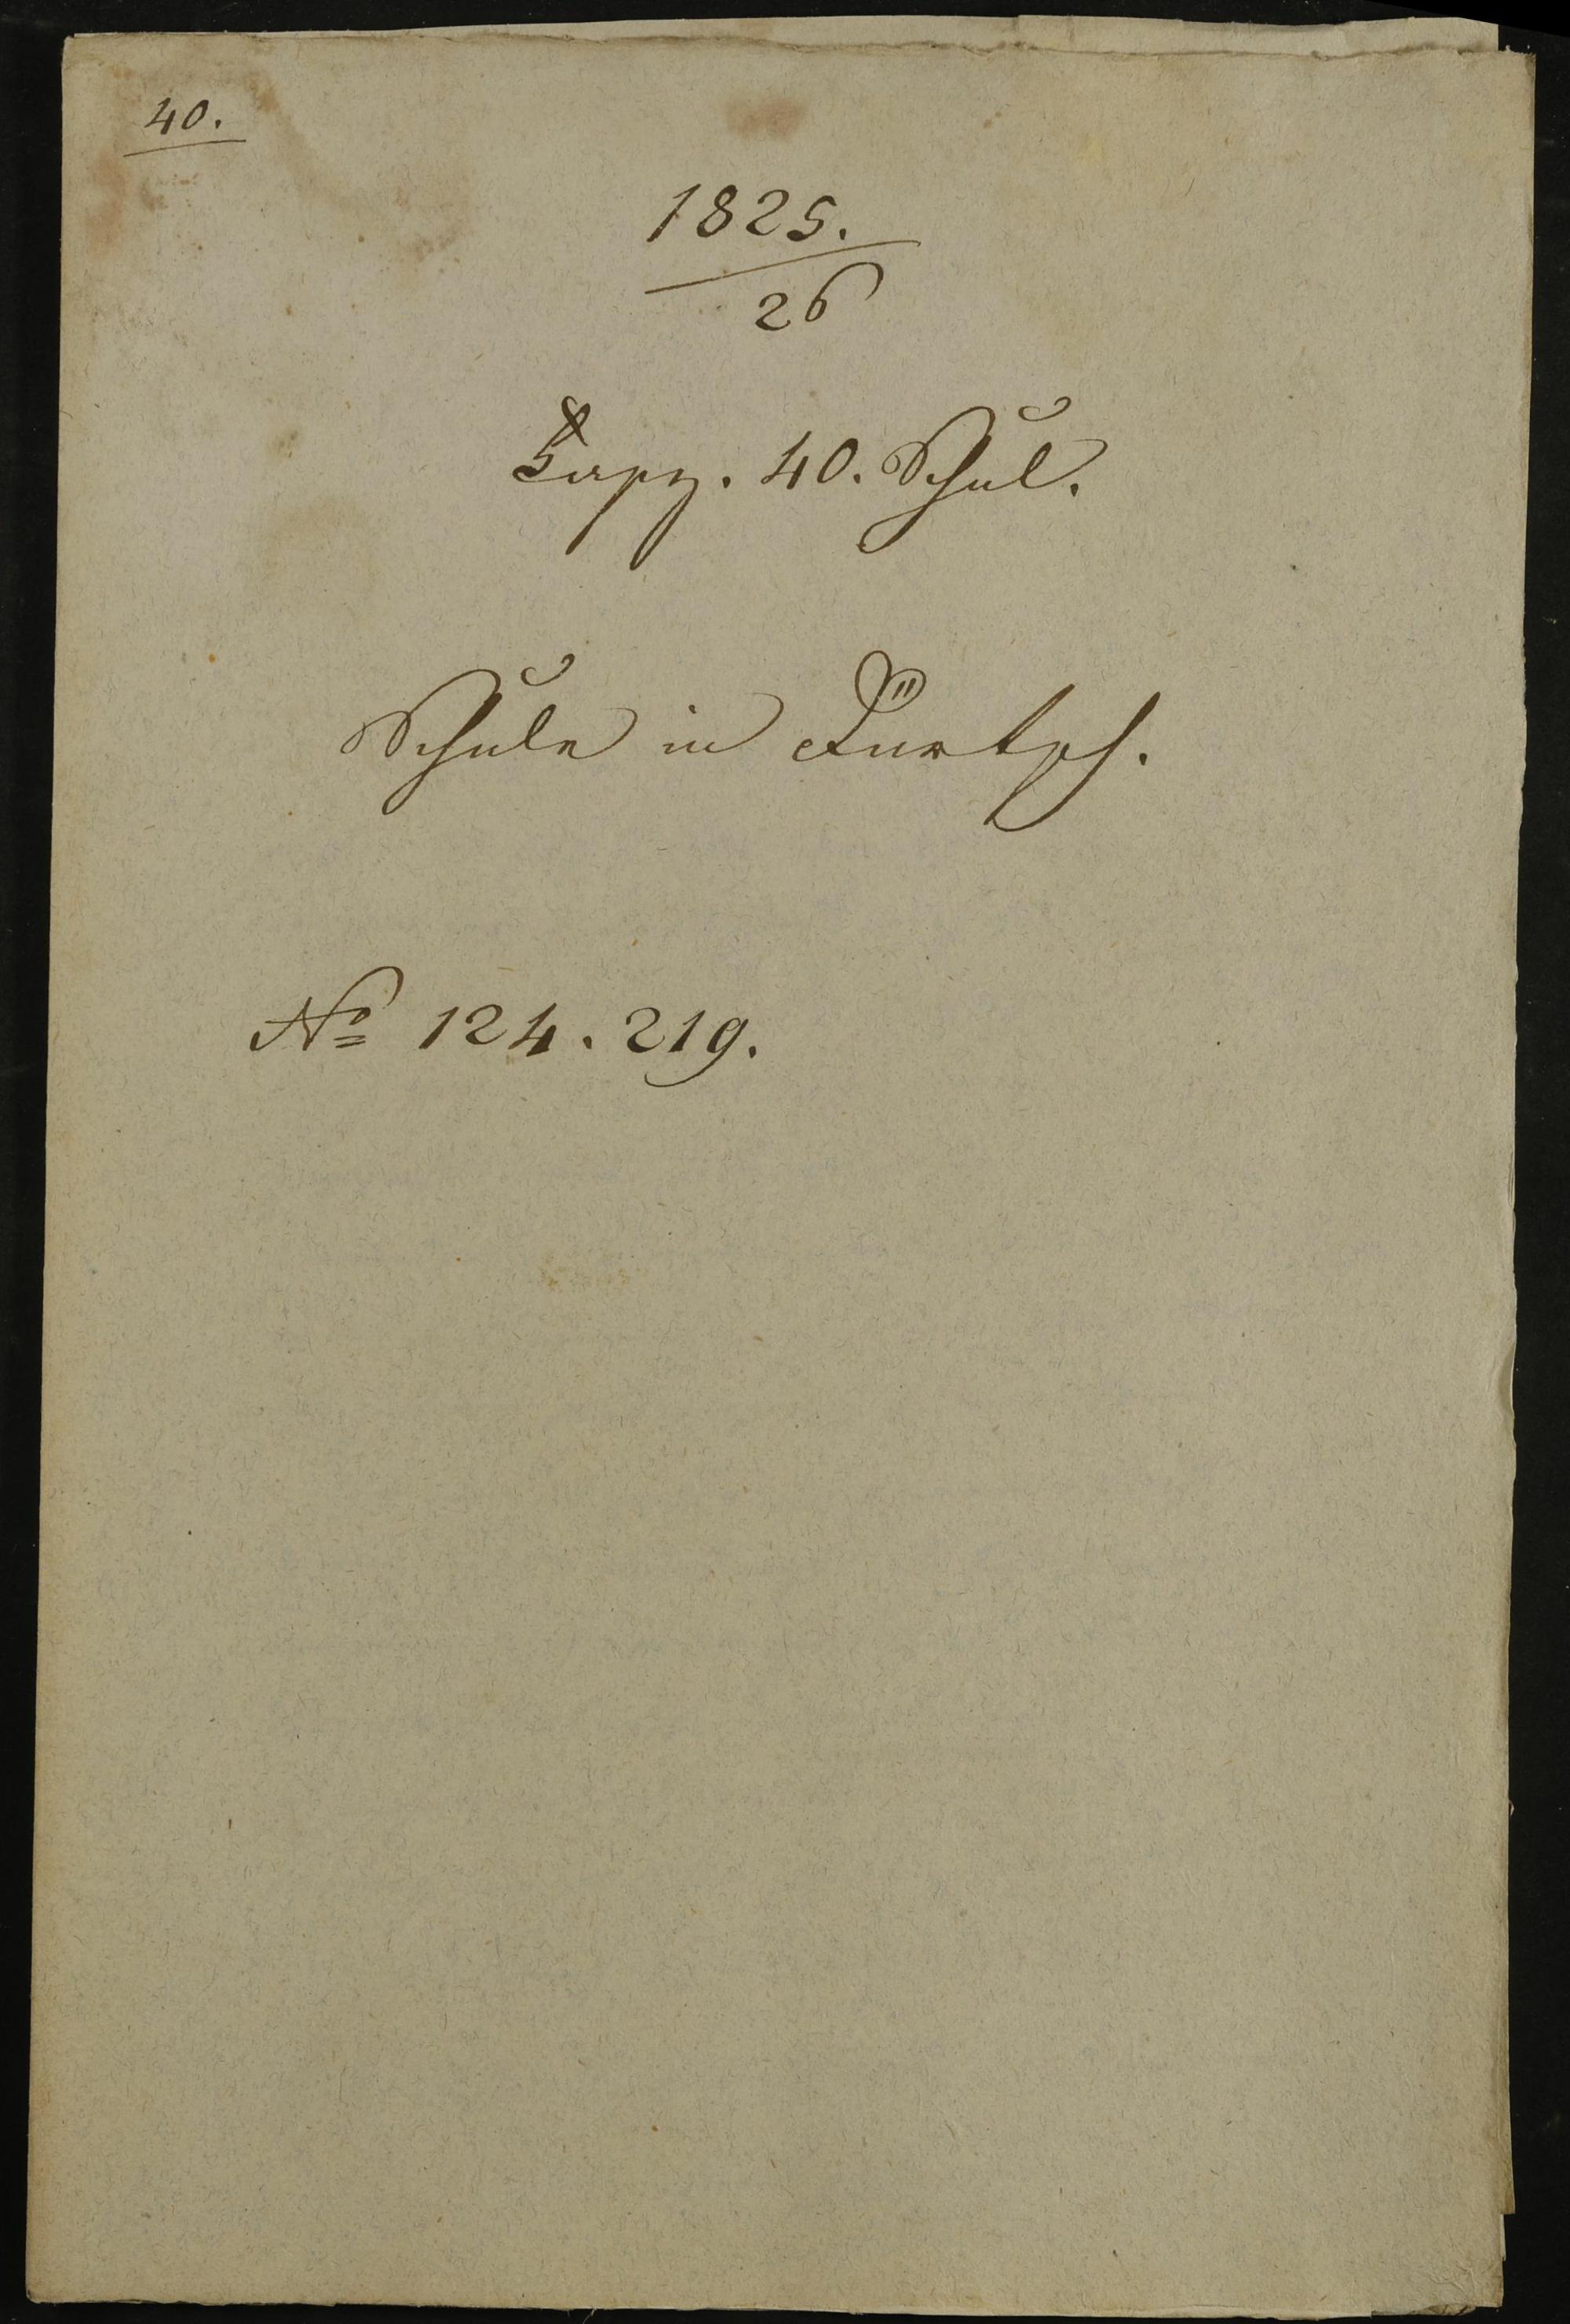 40.
1825.
26
40. Schul.
Schule in
№ 124. 219.